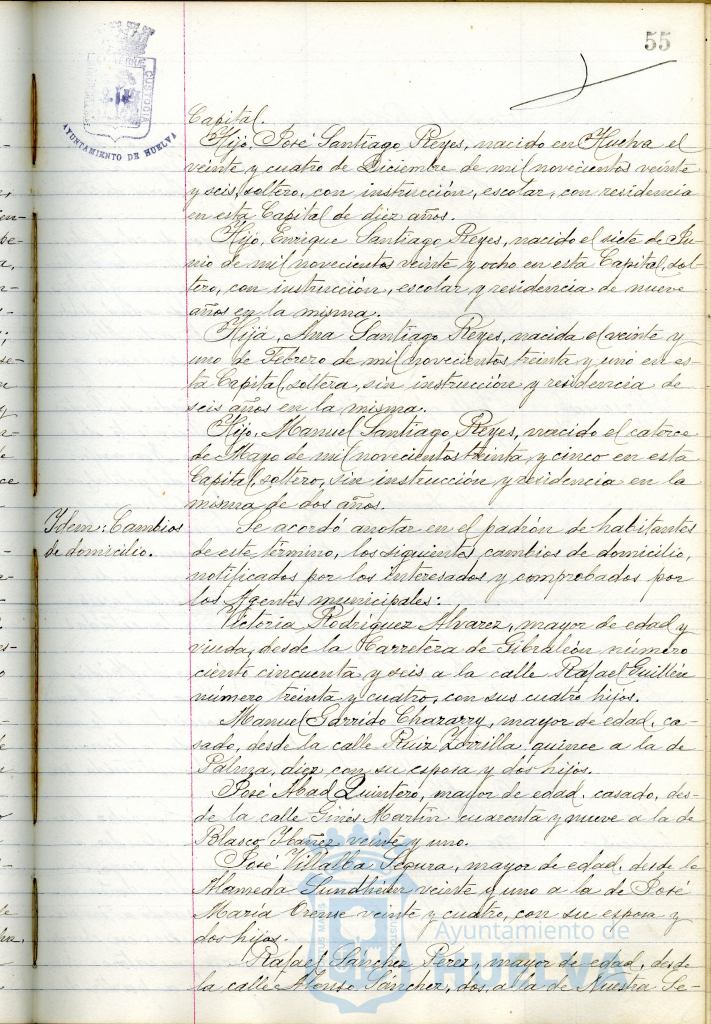 55
AYUNTAMIENTO DE HUELVA
Capital.
Hijo, José Santiago Reyes, nacido en Huelva el
veinte y cuatro de Diciembre de mil novecientos veinte
y seis, soltero, con instrucción, escolar, con residencia
en esta Capital de diez años.
Hijo, Enrique Santiago Reyes, nacido el siete de Ju-
nio de mil novecientos veinte y ocho en esta Capital, sol-
tero, con instrucción, escolar y residencia de nueve
años en la misma.
Hija, Ana Santiago Reyes, nacida el veinte y
uno de Febrero de mil novecientos treinta y uno en es-
ta Capital, soltera, sin instrucción y residencia de
seis años en la misma.
Hijo, Manuel Santiago Reyes, nacido el catorce
de Mayo de mil novecientos treinta y cinco en esta
Capital, soltero, sin instrucción y residencia en la
misma de dos años.
Idem: Cambios
de domicilio.
Se acordó anotar en el padrón de habitantes
de este término, los siguientes cambios de domicilio,
notificados por los interesados y comprobados por
los Agentes municipales:
Victoria Rodríguez Alvarez, mayor de edad y
viuda, desde la Carretera de Gibraleón número
ciento cincuenta y seis a la calle Rafael Guillén
número treinta y cuatro, con sus cuatro hijos.
Manuel Garrido Chazarry, mayor de edad, ca-
sado, desde la calle Ruiz Zorrilla quince a la de
diez con su esposa y dos hijos.
José Abad Quintero, mayor de edad, casado, des-
de la calle Ginés Martín cuarenta y nueve a la de
Blasco Ibañez veinte y uno.
José Villalba Segura, mayor de edad, desde la
Alameda Sundheim veinte y uno a la de José
María Orense veinte y cuatro, con su esposa y
dos hijos.
Rafael Sánchez Pérez, mayor de edad, desde
la calle Alonso Sánchez, dos, a la de Nuestra Se-
Ayuntamiento de
HUELVA